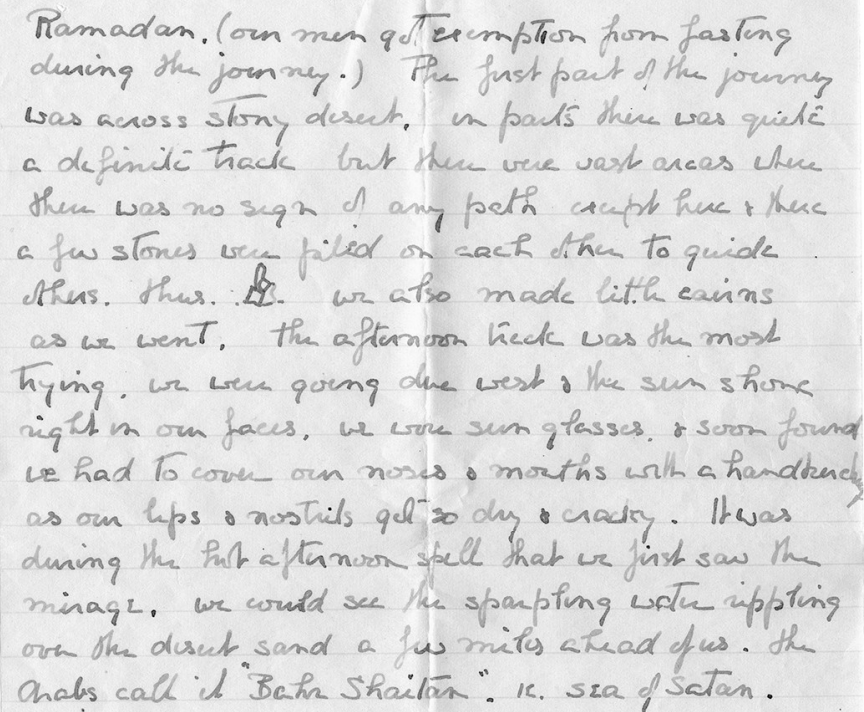 Ramadan. (our men got exemption from fasting
during the journey.) The first part of the journey
was across stony desert. in parts there was quite
a definite track but there were vast areas where
there was no sign of any path except here & there
a few stones were piled on each other to guide
others. thus. we also made little cairns
as we went. the afternoon track was the most
trying. we were going due west & the sun shone
right in our faces. we wore sun glasses. & soon found
we had to cover our noses & mouths with a handkerchief
as our lips & nostrils got so dry & cracky. It was
during the hot afternoon spell that we first saw the
mirage. we could see the sparpling water rippling
over the desert sand a few miles ahead of us. the
Arabs call it "Bahr Shaitan". ie. sea of Satan.